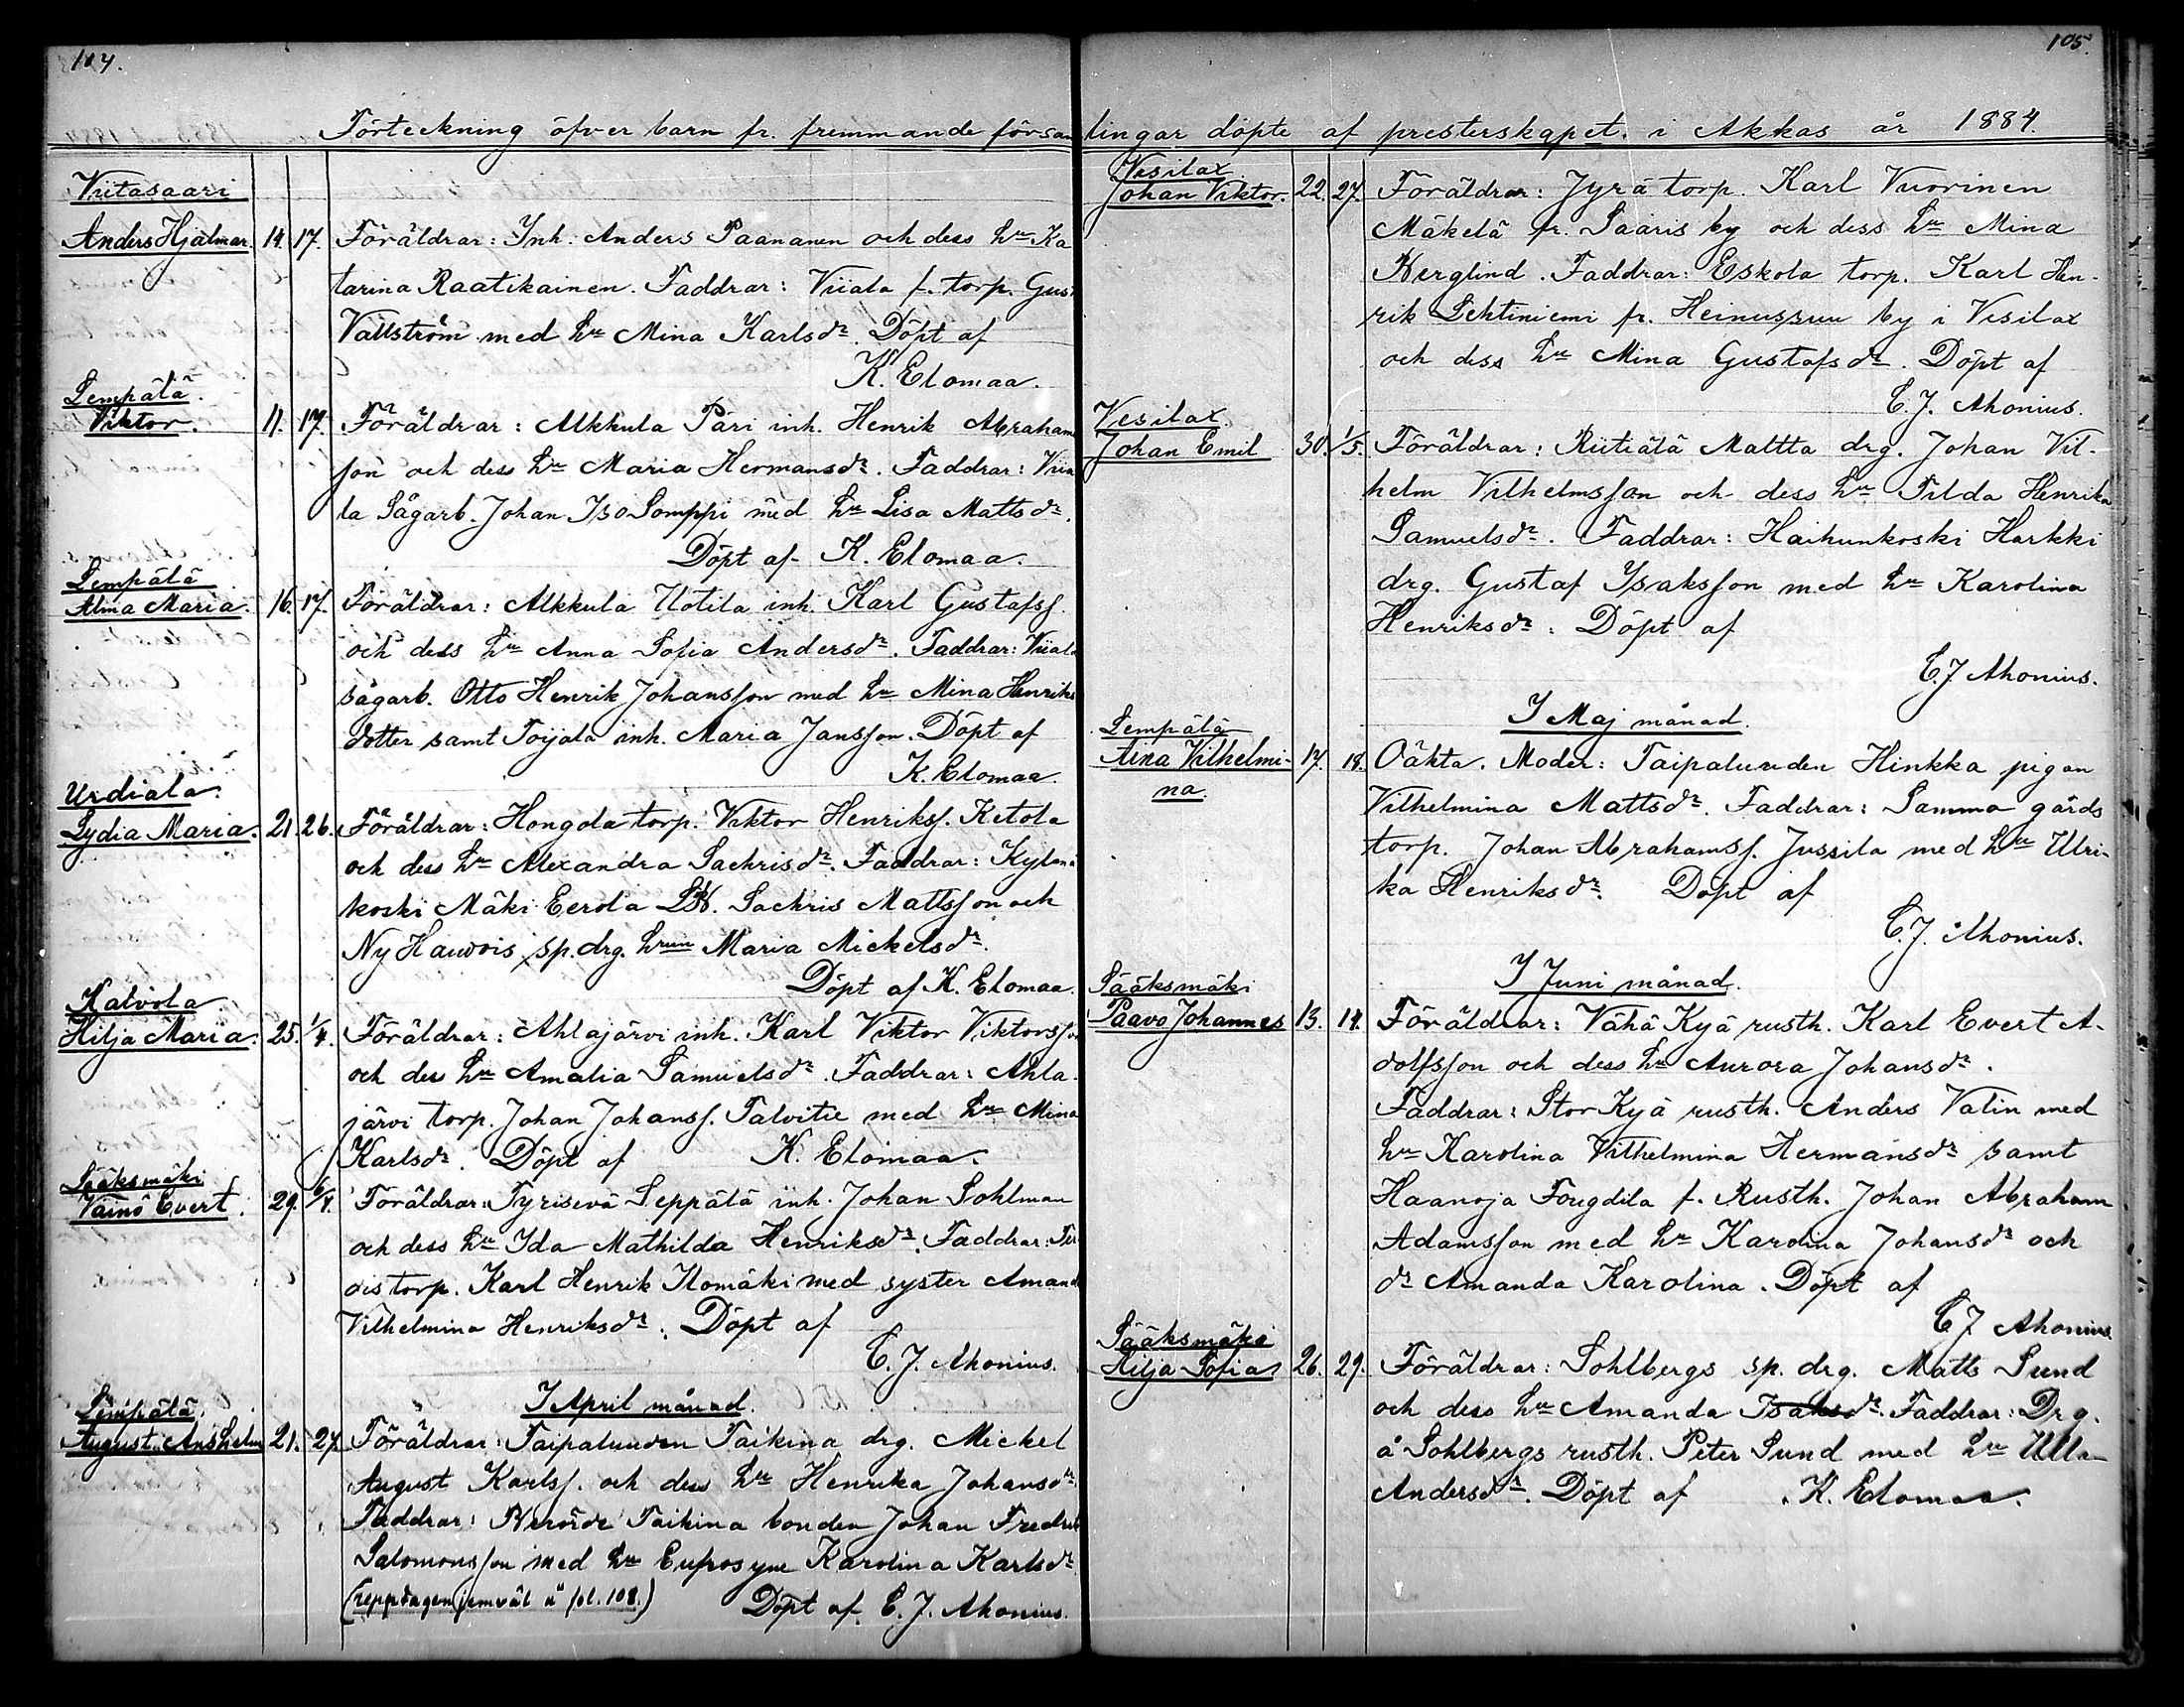 104.
105.
Förteckning öfver barn fr. fremmande församlingar döpte af presterskapet i Akkas år 1884.
Viitasaari
Anders Hjalmar. 14. 17. Föräldrar: Inh. Anders Paananen och dess hu Ka
tarina Raatikainen. Faddrar: Viiala f. torp. Gust
Vallström med hu Mina Karlsdr. Döpt af
K. Elomaa.
Lempälä.
Viktor. 11. 17. Föräldrar: Alkkula Päri inh. Henrik Abraham
son och dess hu Maria Hermansdr. Faddrar: Viia
la Sågarb. Johan Iso Somppi med hu Lisa Mattsdr.
Döpt af K. Elomaa.
Lempälä
Alma Maria. 16. 17. Föräldrar: Alkkula Uotila inh. Karl Gustafss.
och dess hu Anna Sofia Andersdr. Faddrar: Viiala
sågarb. Otto Henrik Johansson med hu Mina Henriks
dotter samt Toijala inh. Maria Jansson. Döpt af
K. Elomaa.
Urdiala.
Lydia Maria. 21. 26. Föräldrar: Hongola torp. Viktor Henrikss. Ketola
och dess hu Alexandra Sachrisdr. Faddrar: Kylmä
koski Mäki Eerola Sachris Mattsson och
Ny Hauvois sp. drg. hrun Maria Mickelsdr.
Döpt af K. Elomaa.
Kalvola
Hilja Maria. 25. 1/4. Föräldrar: Ahlajärvi inh. Karl Viktor Viktorsson
och dess hu Amalia Samuelsdr. Faddrar: Ahla-
järvi torp. Johan Johanss. Talvitie med hu Mina
Karlsdr. Döpt af K. Elomaa.
Sääksmäki
Väinö Evert. 29. 6/4. Föräldrar: Tyrisevä Seppälä inh. Johan Sohlman
och dess hu Ida Mathilda Henriksdr. Faddrar:
ois torp. Karl Henrik Ilomäki med syster Amanda
Vilhelmina Henriksdr. Döpt af
C. J. Ahonius.
I April månad.
Lempälä.
August Anshelm 21. 27. Föräldrar: Taipalunden Taikina drg. Mickel
August Karlss. och dess hu Henrika Johansdr.
Faddrar: Taikina bonden Johan Fredrik
Salomonsson med hu Eufrosyne Karolina Karlsdr.
(reppdagen jemväl å fol. 108.) Döpt af C. J. Ahonius.
Vesilax
Johan Viktor. 22. 27. Föräldrar: Jyrä torp. Karl Vuorinen
Mäkelä fr. Saaris by och dess hu Mina
Berglind. Faddrar: Eskola torp. Karl Hen-
rik Lehtiniemi fr. Heinussuu by i Vesilax
och dess hu Mina Gustafsdr. Döpt af
C. J. Ahonius.
Vesilax.
Johan Emil 30. 1/5. Föräldrar: Riitiälä Maltta drg. Johan Vil-
helm Vilhelmsson och dess hu Tilda Henrika
Samuelsdr. Faddrar: Haihunkoski Harkki
drg. Gustaf Isaksson med hu Karolina
Henriksdr. Döpt af
C. J. Ahonius.
I Maj månad.
Lempälä
Aina Vilhelmi- 17. 18. Oäkta. Moder: Taipalunden Hinkka pigan
na. Vilhelmina Mattsdr. Faddrar: Samma gårds
torp. Johan Abrahamss. Jussila med hu Ulri-
ka Henriksdr. Döpt af
C. J. Ahonius.
I Juni månad.
Sääksmäki
Paavo Johannes 13. 14. Föräldrar: Vähä Kyä rusth. Karl Evert A-
dolfsson och dess hu Aurora Johansdr.
Faddrar: Stor Kyä rusth. Anders Valin med
hu Karolina Vilhelmina Hermansdr samt
Haanoja Fougdila f. Rusth. Johan Abraham
Adamsson med hu Karolina Johansdr och
dr Amanda Karolina. Döpt af
C. J. Ahonius.
Sääksmäki
Hilja Sofia 26. 29. Föräldrar: Sohlbergs sp. drg. Matts Sund
och dess hu Amanda Isaksdr. Faddrar: Drg.
å Sohlbergs rusth. Peter Sund med hu Ulla
Andersdr. Döpt af K. Elomaa.